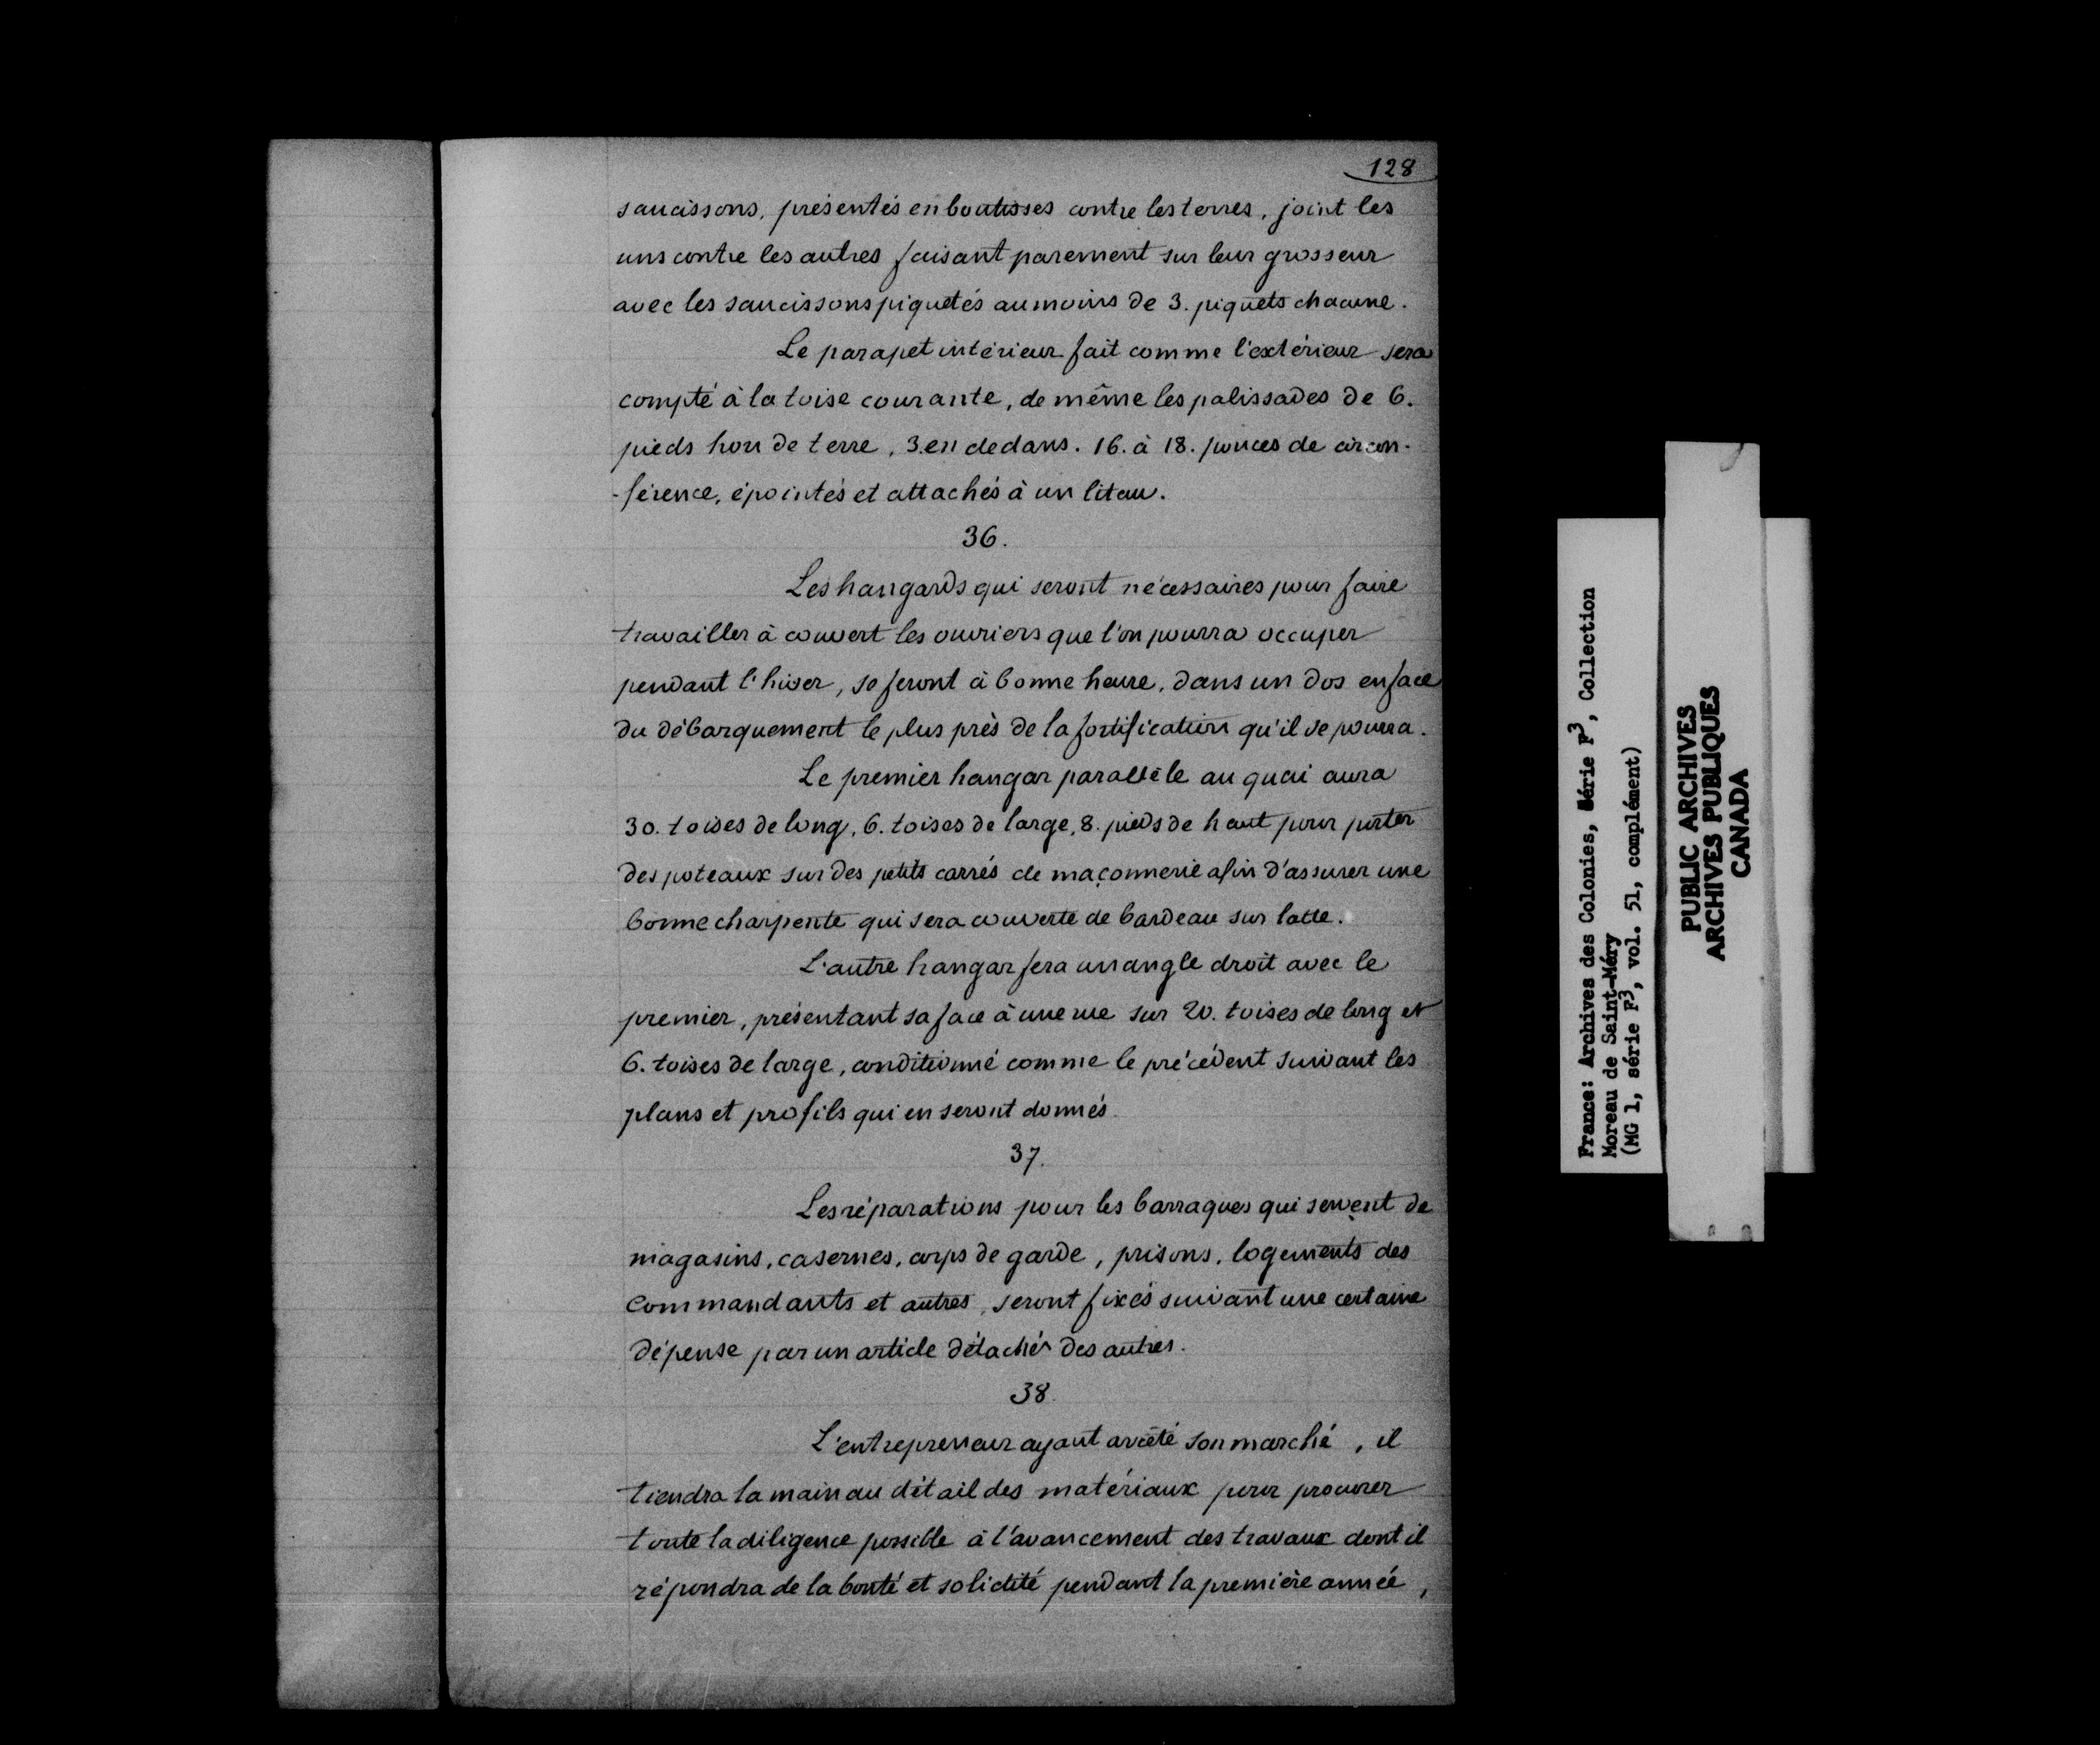 128
saucissons, présentés en boutisses contre les terres, joint les
uns contre les autres faisant parement sur leur grosseur
avec les saucissons piquetés au moins de 3. piquets chacune.
Le parapet intérieur fait comme l'extérieur sera
compté à la toise courante, de même les palissades de 6.
pieds hors de terre, 3. en dedans. 16. à 18. pouces de circon-
-férence, épointés et attachés à un litau.
36.
Les hangards qui seront nécessaires pour faire
travailler à couvert les ouvriers que l'on pourra occuper
pendant l'hiver, se feront à bonne heure, dans un dos en face
du débarquement le plus près de la fortification qu'il se pourra.
Le premier hangar parallèle au quai aura
30. toises de long, 6. toises de large, 8. pieds de haut pour porter
des poteaux sur des petits carrés de maçonnerie afin d'assurer une
bonne charpente qui sera couverte de bardeau sur latte.
L'autre hangar fera un angle droit avec le
premier, présentant sa face à une rue sur 20. toises de long et
6. toises de large, conditionné comme le précédent suivant les
plans et profils qui en seront donnés
37.
Les réparations pour les barraques qui servent de
magasins, casernes, corps de garde, prisons, logements des
commandants et autres, seront fixés suivant une certaine
dépense par un article détaché des autres.
38.
L'entrepreneur ayant arrêté son marché, il
tiendra la main au détail des matériaux pour procurer
toute la diligence possible à l'avancement des travaux dont il
répondra de la bonté et solidité pendant la première année,
France: Archives des Colonies, Série F3, Collection
Moreau de Saint-Méry
(MG 1, série F3, vol. 51, complément)
PUBLIC ARCHIVES
ARCHIVES PUBLIQUES
CANADA